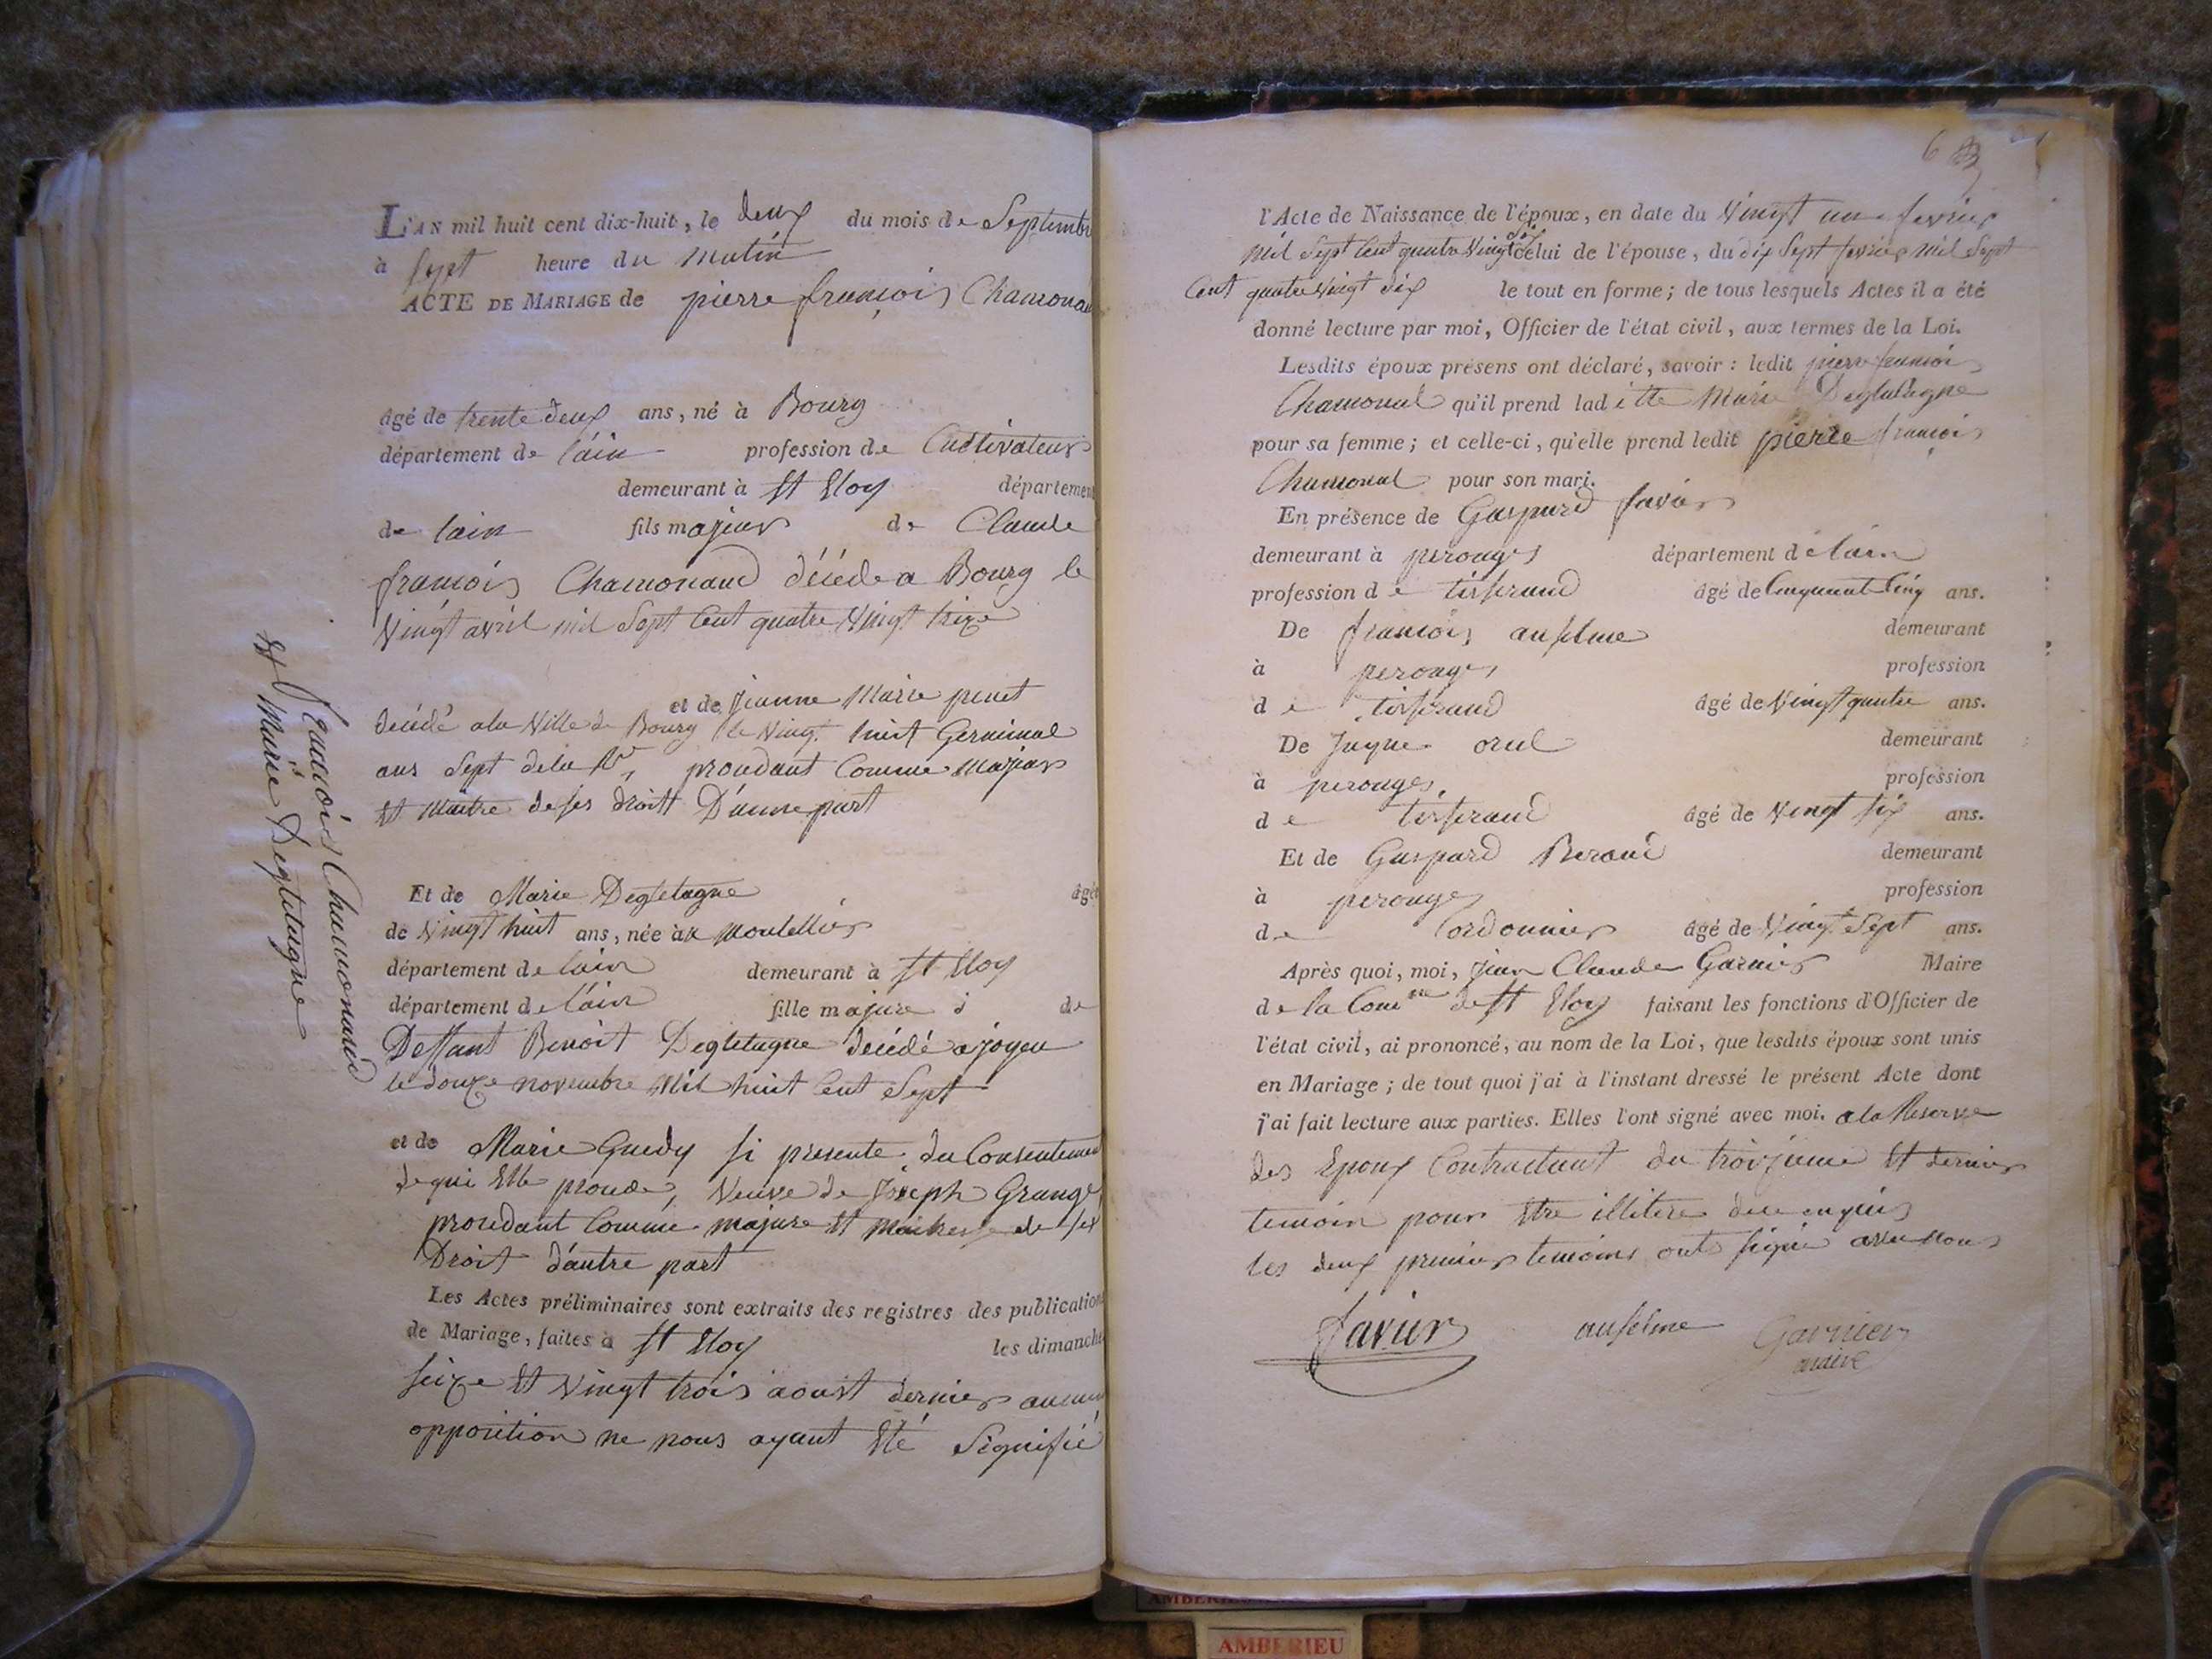 L'AN mil huit cent dix-huit, le deux du mois de Septembr
à sept heure du matin
ACTE DE MARIAGE de pierre françois Chamonau
âgé de trente deux ans, né à Bourg
département de l'ain profession de Cultivateur
demeurant à St Eloy départemen
de lain fils majeur de Claude
françois Chamonaud décéde a Bourg le
Vingt avril mil Sept Cent quatre Vingt treize
et de Jeanne Marie penet
décédé a la Ville de Bourg le Vingt huit Germinal
ans Sept de la Rue, procedant Comme Majeur
Et Maitre de ses droitt D'aune part
Et de Marie Degletagne âgée
de Vingt huit ans, née au Montellier
département de lain demeurant à St Eloy
département de l'ain fille majure de
Deffunt Benoit Degletagne décédé a joyeu
le douze novembre Mil huit Cent Sept
et de Marie Guedy si presente du Consentemen
de qui Elle procede, Veuve de Joseph Grange
procedant Comme majure Et Maitresse de ses
Droit d'autre part
Les Actes préliminaires sont extraits des registres des publication
de Mariage, faites à St Eloy les dimanche
seize Et Vingt trois aoust dernier aucun
opposition ne nous ayant Eté Signifié
françois Chamonaud
Et Marie Degletagne
6
l'Acte de Naissance de l'époux, en date du Vingt un fevrier
mil Sept Cent quatre Vingt six celui de l'épouse, du dix Sept fevrier mil Sept
Cent quatre Vingt dix le tout en forme; de tous lesquels Actes il a été
donné lecture par moi, Officier de l'état civil, aux termes de la Loi.
Lesdits époux présens ont déclaré, savoir: ledit pierre françois
Chamonal qu'il prend laditte Marie Degletagne
pour sa femme; et celle-ci, qu'elle prend ledit pierre françois
Chamonal pour son mari.
En présence de Gaspard favier
demeurant à perouges département de lain
profession de tisserand âgé de Cinquant Cinq ans.
De françois anselme demeurant
à perouges profession
de tisserand âgé de Vingt quatre ans.
De Jaque orsel demeurant
à perouges, profession
de tisserand âgé de Vingt six ans.
Et de Gaspard Beraud demeurant
à perouges profession
de Cordonnier âgé de Vingt Sept ans.
Après quoi, moi, Jean Claude Garnier Maire
de la Comne de St Eloy faisant les fonctions d'Officier de
l'état civil, ai prononcé, au nom de la Loi, que lesdits époux sont unis
en Mariage; de tout quoi j'ai à l'instant dressé le présent Acte dont
j'ai fait lecture aux parties. Elles l'ont signé avec moi. a la Reserve
des Epoux Contractant du troizieme Et dernier
temoin pour Etre illitere de ce enquis
les deux premier temoins ont signé avec nous
favier anselme Garnier
maire
AMBERIEU
AMBERIEU